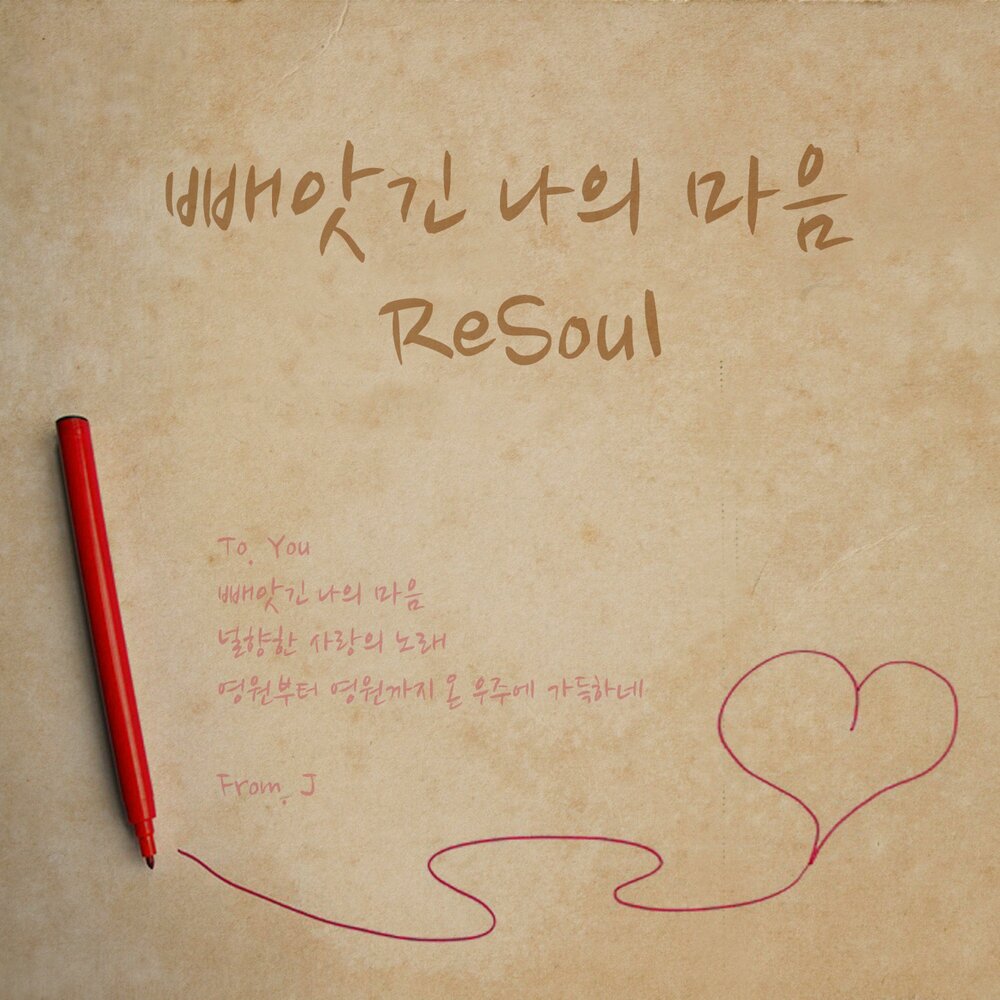 빼앗긴 나의 마음
ReSoul
To. You
빼앗긴 나의 마음
널향한 사랑의 노래
영원부터 영원까지 온 우주에 가득하네
From. J